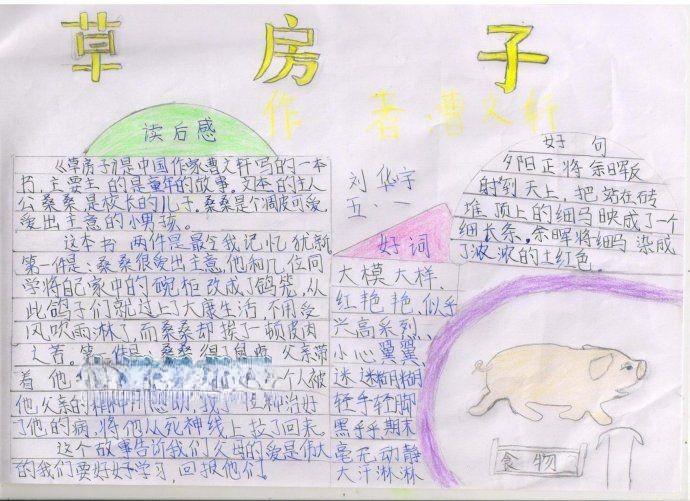 草房子
作者曹文轩
读后感
《草房子》是中国作家曹文轩写的一本
书,主要主的是童年的故事。文本的主人
公桑桑是校长的儿子,桑桑是个凋皮可爱,
爱出主意的小男孩。
这本书两件是最令我记忆犹新
第一件是:桑桑很爱出主意,他和几位同
学将自己家中的碗柜改成了鸽笼,从
此鸽子们就过上了大康生活,不用受
风吹雨淋了,而桑桑却挨了一顿皮肉
之苦。第二件是桑桑得了鼠疮,父亲带
着他
个人被
他父亲的精神所感动,我
治好
了他的病,将他从死神线上拉了回来。
这个故事告诉我们父母的爱是伟大
的我们要好好学习,回报他们!
刘华宇
五·一
好词
大模大样、
红艳艳、似乎
兴高系列、
小心翼翼、
迷迷糊糊
轻手轻脚
黑乎乎期末
毫无动静
大汗淋淋
好句
夕阳正将余晖
射到天上,把站在砖
堆顶上的细马映成了一个
细长条。余晖将细马染成
了浓浓的土红色。
食物